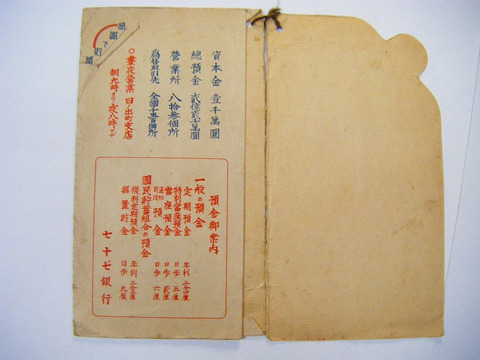 資本金 壹千萬圓
總預金 貳億貳千萬圓
營業所 八拾參個所
爲替取引先 全國千壹百個所
○晝夜營業 日ノ出町支店
朝九時より夜八時まで
預金御案内
一般の預金
定期預金 年利
特別當座預金 日歩 五厘
當座預金 日歩 貳厘
預金 日歩 六厘
國民貯蓄組合の預金
複利定期預金 年利
据置貯金 日歩 九厘
七十七銀行